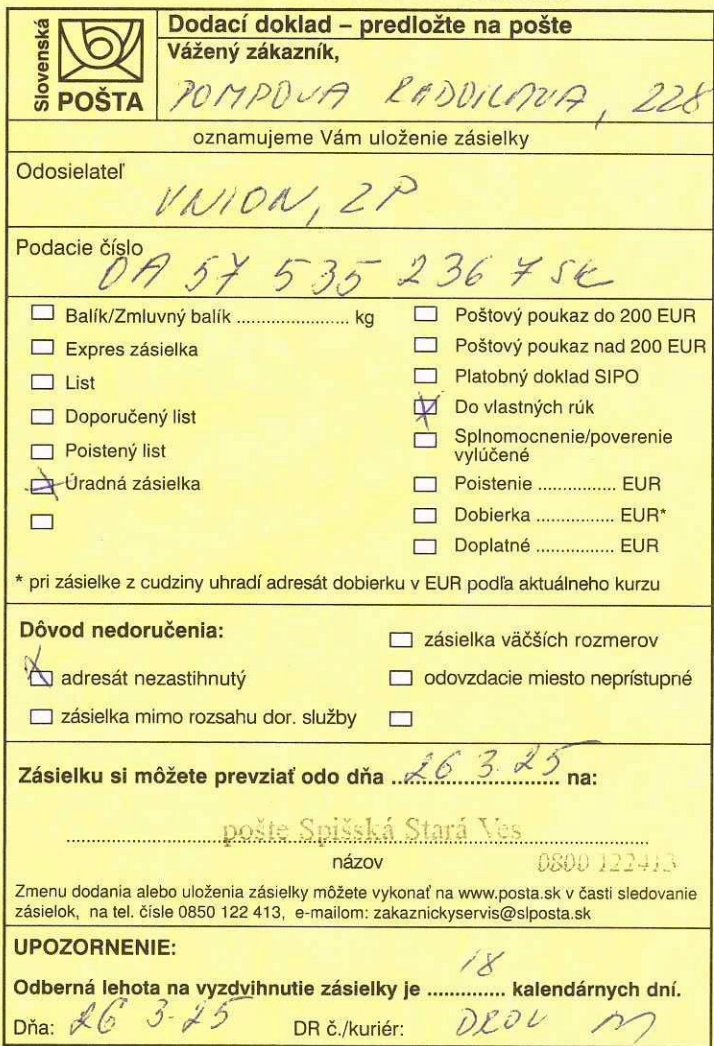 Slovenská
POŠTA
Dodací doklad – predložte na pošte
Vážený zákazník,
POMPOVA RADOSLAVA, 228
oznamujeme Vám uloženie zásielky
Odosielateľ
UNION, ZP
Podacie číslo
OA 57 535 236 7 SK
Balík/Zmluvný balík ...................... kg
Expres zásielka
List
Doporučený list
Poistený list
Úradná zásielka
Poštový poukaz do 200 EUR
Poštový poukaz nad 200 EUR
Platobný doklad SIPO
Do vlastných rúk
Splnomocnenie/poverenie
vylúčené
Poistenie ................ EUR
Dobierka ................ EUR*
Doplatné ................ EUR
* pri zásielke z cudziny uhradí adresát dobierku v EUR podľa aktuálneho kurzu
Dôvod nedoručenia:
adresát nezastihnutý
zásielka mimo rozsahu dor. služby
zásielka väčších rozmerov
odovzdacie miesto neprístupné
Zásielku si môžete prevziať odo dňa 26 3. 25 na:
pošte Spišská Stará Ves
názov
0800 122413
Zmenu dodania alebo uloženia zásielky môžete vykonať na www.posta.sk v časti sledovanie
zásielok, na tel. čísle 0850 122 413, e-mailom: zakaznickyservis@slposta.sk
UPOZORNENIE:
Odberná lehota na vyzdvihnutie zásielky je 18 kalendárnych dní.
Dňa: 26 3. 25 DR č./kuriér: